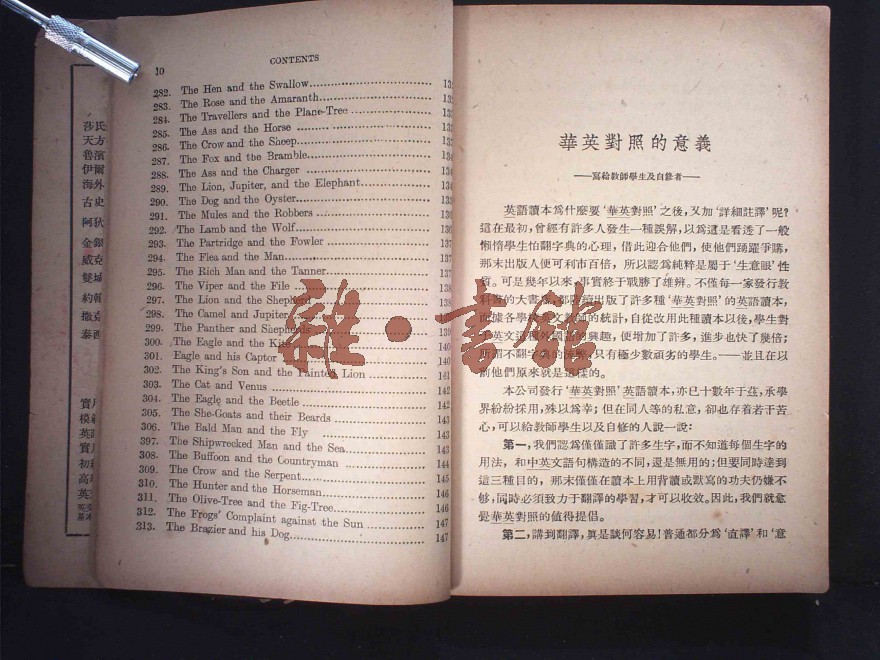 莎氏
天方
魯濱
伊爾
海外
古史
阿狄
金銀
威克
雙城
約翰
撒克
泰西
實用
模範
英語
實用
初級
高級
英文
10 CONTENTS
282. The Hen and the Swallow
283. The Rose and the Amaranth
284. The Travellers and the Plane-Tree
285. The Ass and the Horse
286. The Crow and the Sheep
287. The Fox and the Bramble
288. The Ass and the Charger
289. The Lion, Jupiter, and the Elephant
290. The Dog and the Oyster
291. The Mules and the Robbers
292. The Lamb and the Wolf
293. The Partridge and the Fowler
294. The Flea and the Man
295. The Rich Man and the Tanner
296. The Viper and the File
297. The Lion and the Shepherd
298. The Camel and Jupiter
299. The Panther and Shepherds
300. The Eagle and the Kite 140
301. Eagle and his Captor 140
302. The King's Son and the Painted Lion 141
303. The Cat and Venus 142
304. The Eagle and the Beetle 142
305. The She-Goats and their Beards 143
306. The Bald Man and the Fly 143
397. The Shipwrecked Man and the Sea 143
308. The Buffoon and the Countryman 144
309. The Crow and the Serpent 145
310. The Hunter and the Horseman 146
311. The Olive-Tree and the Fig-Tree 146
312. The Frogs' Complaint against the Sun 147
313. The Brazier and his Dog 147
華英對照的意義
——寫給敎師學生及自修者——
英語讀本爲什麼要‘華英對照’之後，又加‘詳細註譯’呢？
這在最初，曾經有許多人發生一種誤解，以爲這是看透了一般
懶惰學生怕翻字典的心理，借此迎合他們，使他們踴躍爭購，
那末出版人便可利市百倍，所以認爲純粹是屬于‘生意眼’性
質。可是幾年以來，事實終于戰勝了雄辨。不僅每一家發行敎
科書的大書局，都陸續出版了許多種‘華英對照’的英語讀本，
而據各學校英文敎師的統計，自從改用此種讀本以後，學生對
于英文這種外國語的興趣，便增加了許多，進步也快了幾倍；
所謂不翻字典的流弊，只有極少數頑劣的學生。——並且在以
前他們原來就是這樣的。
本公司發行‘華英對照’英語讀本，亦已十數年于茲，承學
界紛紛採用，殊以爲幸；但在同人等的私意，卻也存着若干苦
心，可以給敎師學生以及自修的人說一說：
第一，我們認爲僅僅識了許多生字，而不知道每個生字的
用法，和中英文語句構造的不同，還是無用的；但要同時達到
這三種目的，那末僅僅在讀本上用背讀或默寫的功夫仍嫌不
够，同時必須致力于翻譯的學習，才可以收效。因此，我們就愈
覺華英對照的値得提倡。
第二，講到翻譯，眞是談何容易！普通都分爲‘直譯’和‘意
雜·書館